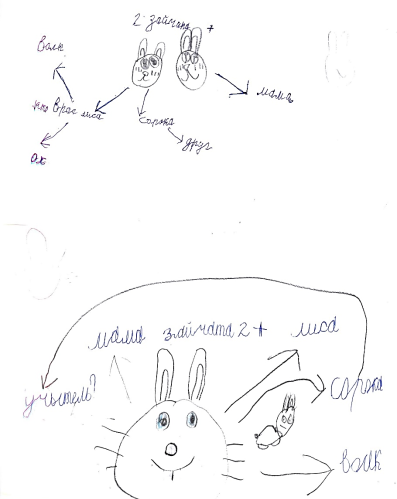 2 зайчата +
волк
мама
кто враг лиса
сорока
друг
мама зайчата 2 + лиса
учител?
сорока
волк